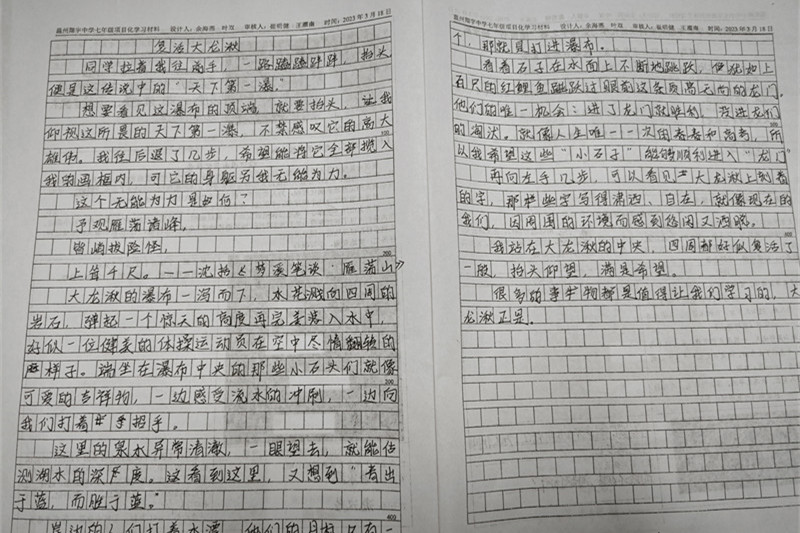 温州翔宇中学七年级项目化学习材料 设计人：余海燕 叶互 审核人：崔绍健 王潘南 时间：2023年3月18日
复活大龙湫
同学拉着我往高手，一路踉踉跄跄，抬头
便是这传说中的“天下第一瀑。”
想要看见这瀑布的顶端，就要抬头，让我
仰视这所景的天下第一瀑，不禁感叹它的高大
雄伟。我往后退了几步，希望能将它全部揽入
我的画框内，可它的身躯另我无能为力。
这个无能为力是如何？
予观雁荡诸峰，
皆峭拔险怪，
上耸千尺。——沈括《梦溪笔谈·雁荡山》
大龙湫的瀑布一泻而下，水花溅向四周的
岩石，弹起一个惊天的高度再完美落入水中，
好似一位健美的体操运动员在空中尽情翻镜的
样子。端坐在瀑布中央的那些小石头们就像
可爱的吉祥物，一边感受流水的冲刷，一边向
我们打着手招手。
这里的泉水异常清澈，一眼望去，就能估
测湖水的深度。这看到这里，又想到“青出
于蓝，而胜于蓝。”
岸边的人们打着水漂，他们的目标只有一
400
温州翔宇中学七年级项目化学习材料 设计人：余海燕 叶互 审核人：崔绍健 王潘南 时间：2023年3月18日
个，那就是打进瀑布。
看着石子在水面上不断地跳跃，便犹如上
百尺的红鲤鱼跳跃过眼前这条质高无尚的龙门。
他们的唯一机会：进了龙门就胜利，没进龙门
的淘汰。就像人生唯一一次的青春和高考，所
以我希望这些“小石子”能够顺利进入“龙门”
再向左手几步，可以看见“大龙湫上刻着
的字，那些字写得潇洒、自在，就像现在的
我们，因周围的环境而感到悠闲又洒脱。
我站在大龙湫的中央，四周都好似复活了
一般，抬头仰望，满是希望。
很多的事物都是值得让我们学习的，大
龙湫正是。